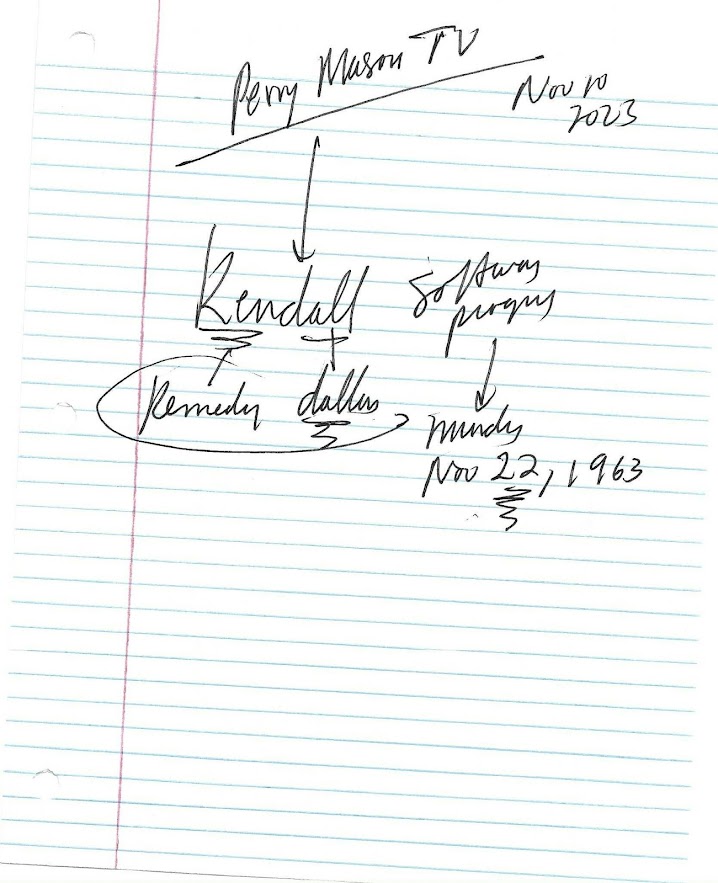 Perry Mason TV
Nov 10
2023
Kendall
Software
Kennedy dallas
Nov 22, 1963